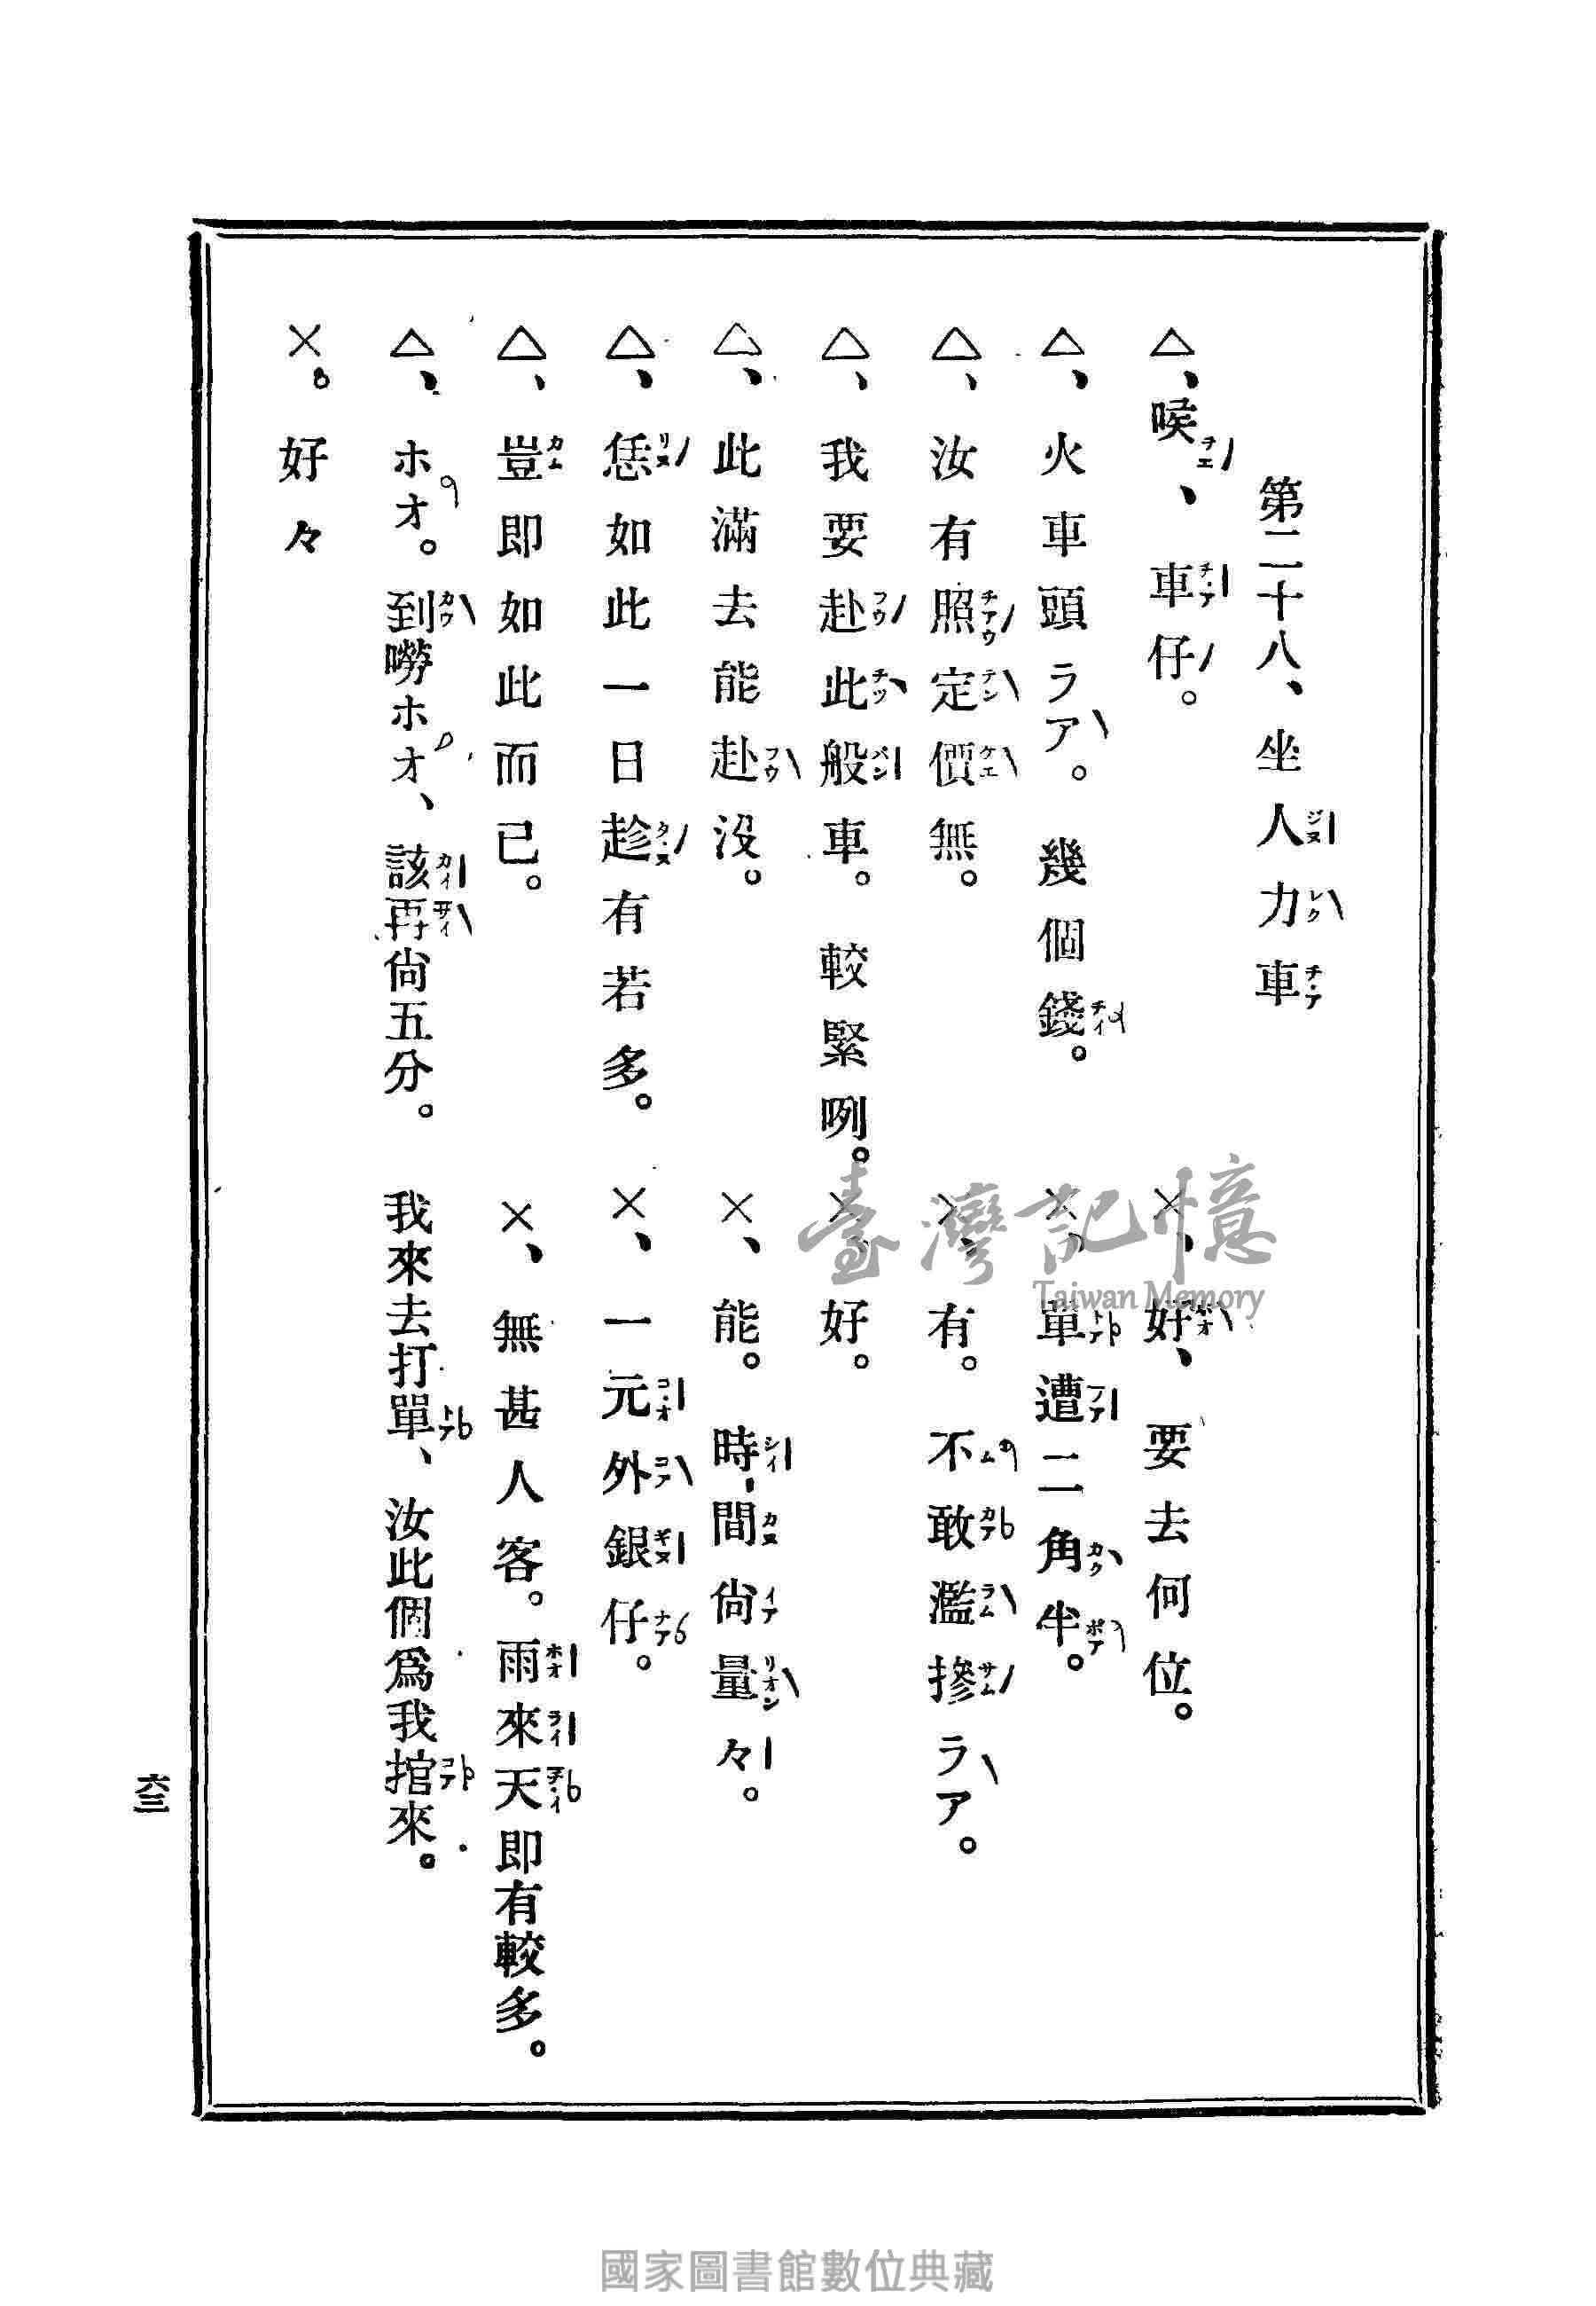 第二十八、坐人力車
△、唉、車仔。
×、好、要去何位。
△、火車頭ラア。幾個錢。
×、單遭二角半。
△、汝有照定價無。
×、有。不敢濫摻ラア。
△、我要赴此般車。較緊咧。
×、好。
△、此滿去能赴沒。
×、能。時間尙量々。
△、恁如此一日趁有若多。
×、一元外銀仔。
△、豈卽如此而已。
×、無甚人客。雨來天卽有較多。
△、ホオ。到嘮ホオ、該再尙五分。我來去打單、汝此個爲我捾來。
×。好々
六三
臺灣記憶
Taiwan Memory
國家圖書館數位典藏